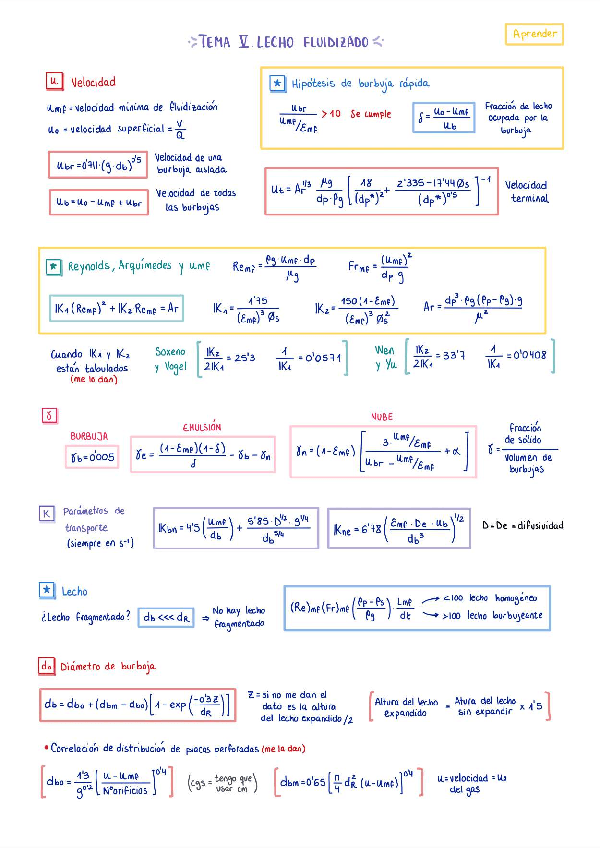 TEMA V. LECHO FLUIDIZADO
Aprender
u. Velocidad
umf = velocidad mínima de fluidización
uo = velocidad superficial = V/Q
ubr = 0'711·(g·db)^0'5 Velocidad de una burbuja aislada
ub = uo - umf + ubr Velocidad de todas las burbujas
★ Hipótesis de burbuja rápida
ubr / (umf/εmf) > 10 Se cumple
δ = (uo - umf) / ub
Fracción de lecho ocupada por la burbuja
ut = Ar^1/3 μg/(dp·ρg) [18/(dp*)^2 + (2'335 - 17'44 Øs)/(dp*)^0'5]^-1 Velocidad terminal
★ Reynolds, Arquímedes y umf
Remf = (ρg·umf·dp)/μg
Frmf = (umf)^2/(dp g)
IK1 (Remf)^2 + IK2 Remf = Ar
IK1 = 1'75/((εmf)^3 Øs)
IK2 = 150(1-εmf)/((εmf)^3 Øs^2)
Ar = dp^3·ρg(ρp-ρg)·g/μ^2
Cuando IK1 y IK2 están tabulados (me lo dan)
Soxeno y Vogel [IK2/2IK1 = 25'3 1/IK1 = 0'0571]
Wen y Yu [IK2/2IK1 = 33'7 1/IK1 = 0'0408]
γ
BURBUJA
γb = 0'005
EMULSIÓN
γe = (1-εmf)(1-δ)/δ - γb - γn
NUBE
γn = (1-εmf) [3·umf/εmf / (ubr - umf/εmf) + α]
γ = fracción de sólido / volumen de burbujas
K Parámetros de transporte (siempre en s⁻¹)
IKbn = 4'5 (umf/db) + 5'85·D^1/2·g^1/4/db^5/4
IKne = 6'78 (εmf·De·ub/db^3)^1/2
D=De = difusividad
★ Lecho
¿Lecho fragmentado? db <<< dR ⇒ No hay lecho fragmentado
(Re)mf (Fr)mf (ρp-ρs/ρg)·Lmf/dt
→ <100 lecho homogéneo
→ >100 lecho burbujeante
do Diámetro de burbuja
db = dbo + (dbm - dbo) [1 - exp(-0'3 Z/dR)]
Z = si no me dan el dato es la altura del lecho expandido/2
[Altura del lecho expandido = Atura del lecho sin expandir x 1'5]
• Correlación de distribución de placas perforadas (me la dan)
[dbo = 1'3/g^0'2 [u - umf/Nºorificios]^0'4]
(cgs = tengo que usar cm)
[dbm = 0'65 [π/4 dR^2 (u-umf)]^0'4]
u = velocidad del gas = uo